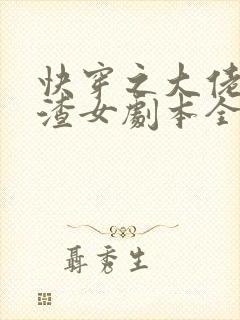 快穿之大佬
渣女劇本全
聶秀生